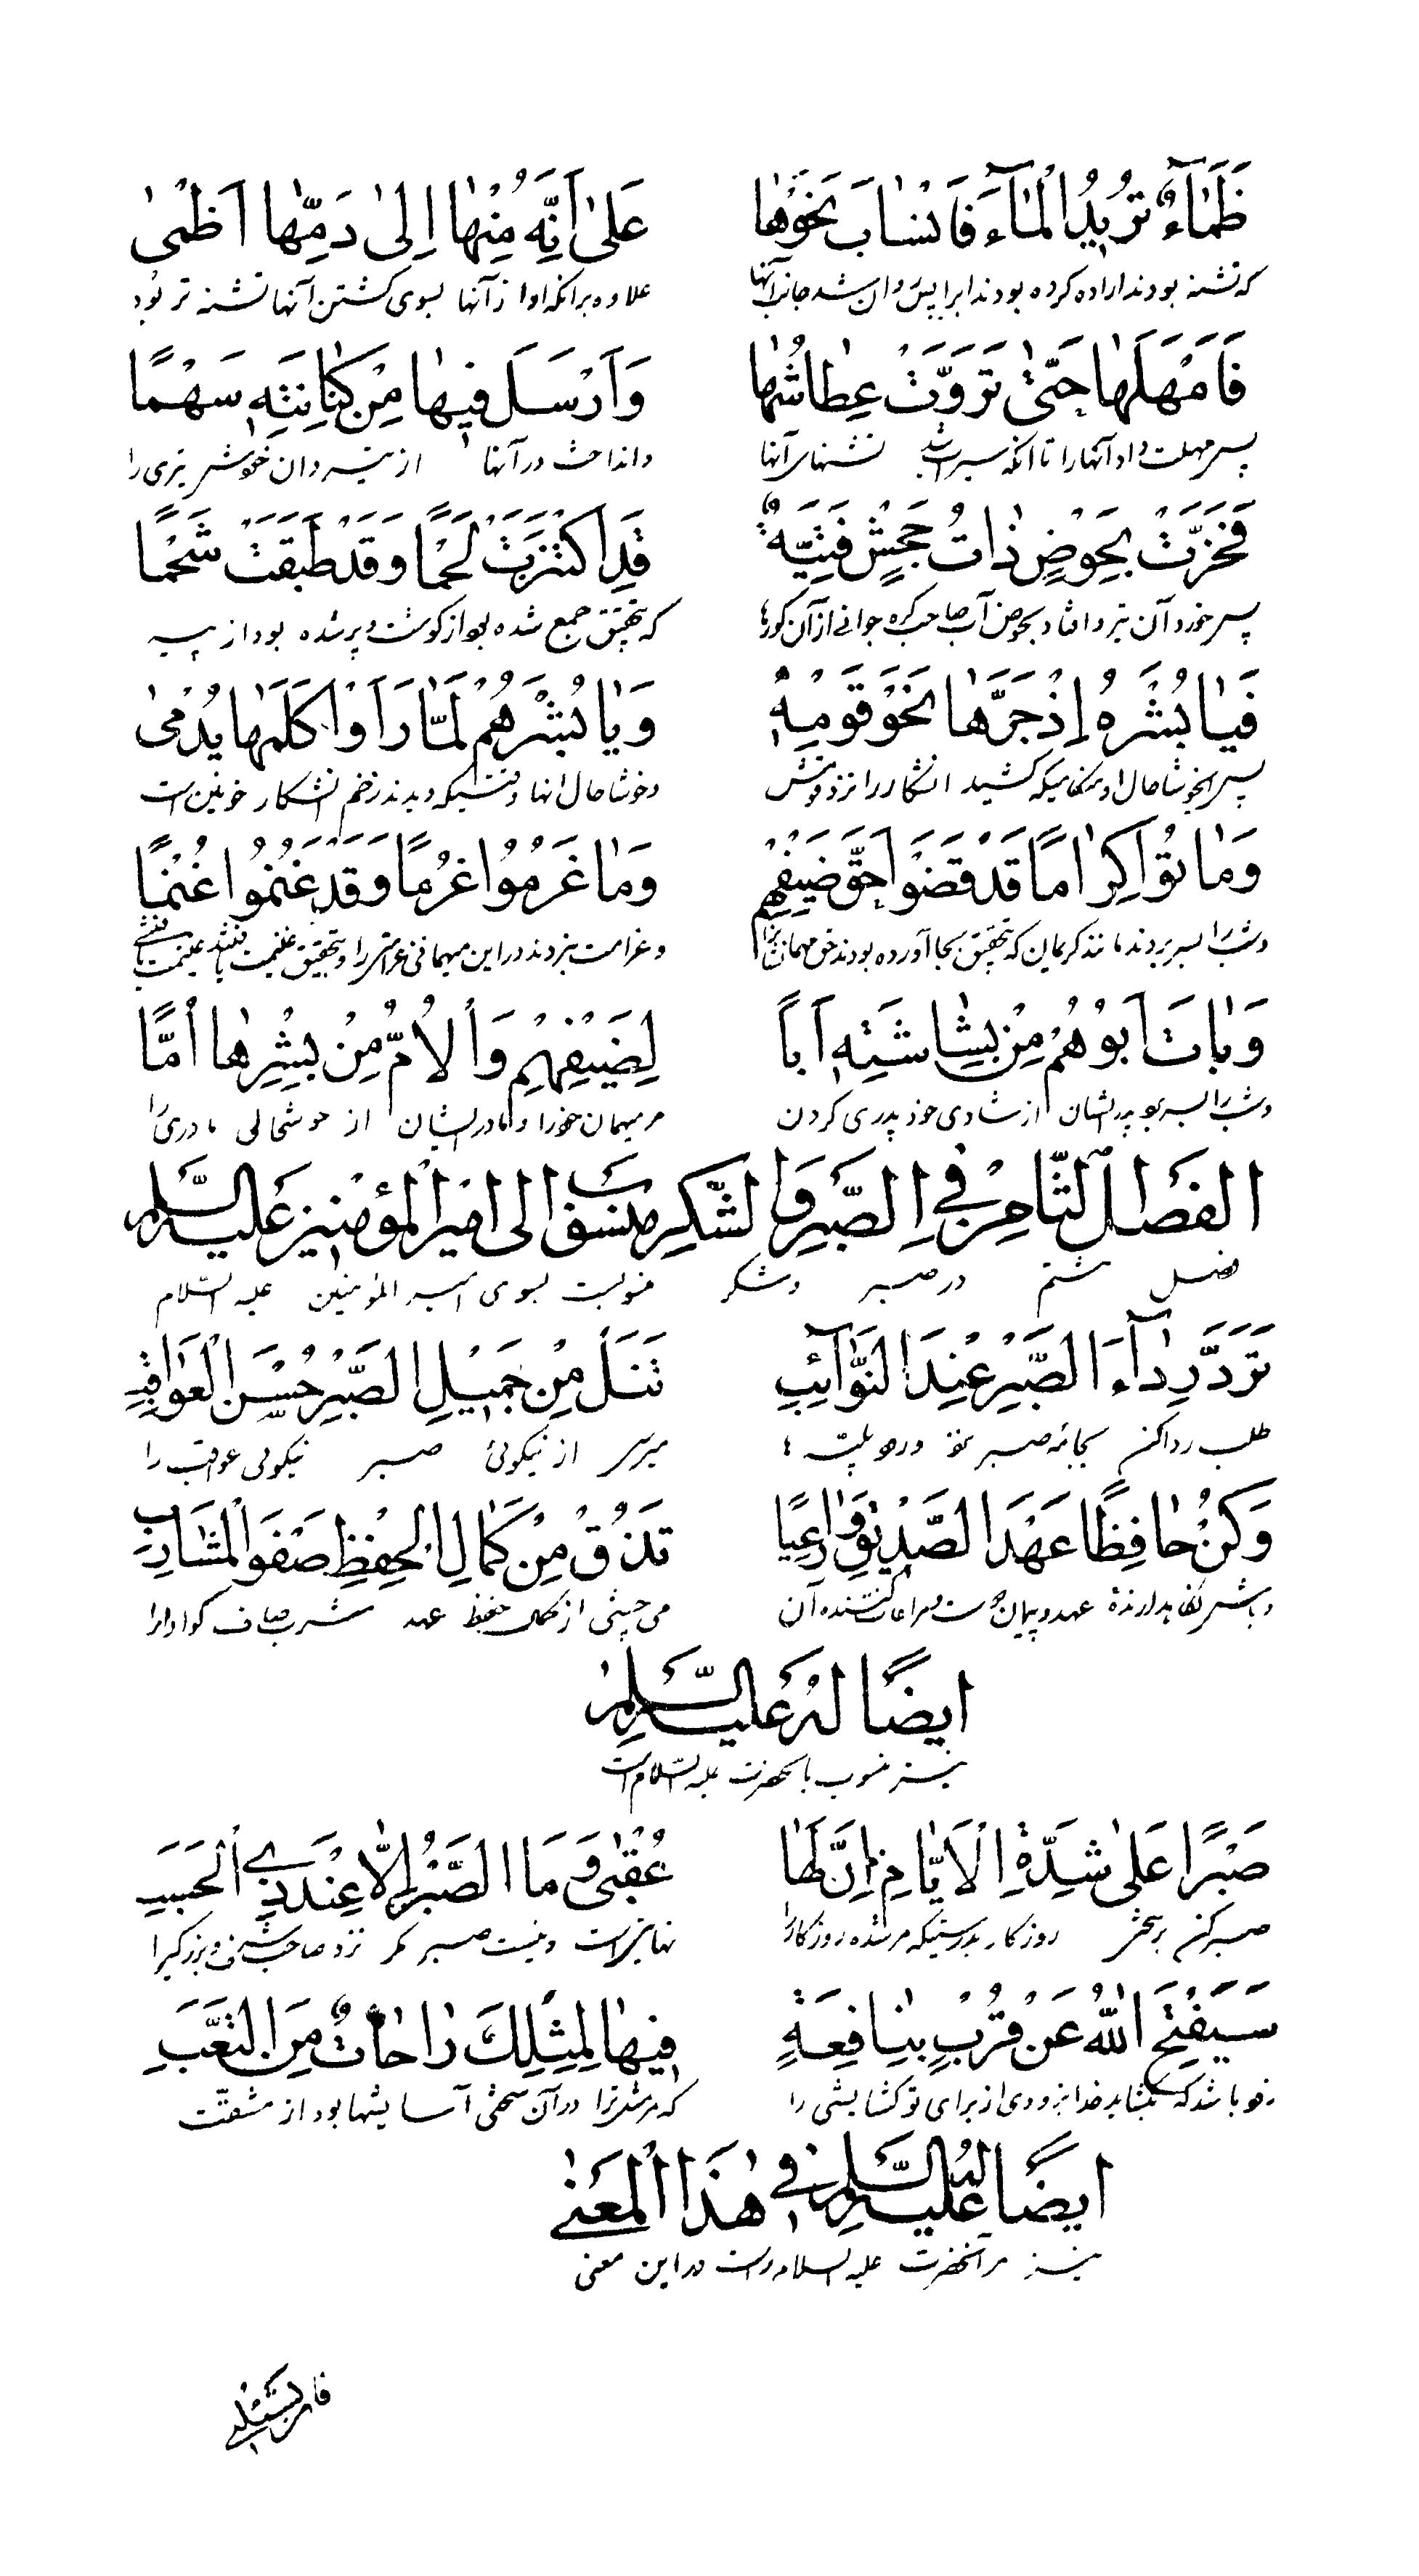 ظَمَآءٌ تُرِيدُ الْمَآءَ فَانْسَابَ نَحْوَهَا عَلَىٰ أَنَّهُ مِنْهَا إِلَىٰ دَمِّهَا أَظْمَىٰ
که تشنه بودند اراده کرده بودند ابرا پس روان شد جانب آنها علاوه برانکه او از آنها بسوی کشتن آنها تشنه تر بود
فَأَمْهَلَهَا حَتَّىٰ تَرَوَّتْ عِطَاشُهَا وَأَرْسَلَ فِيهَا مِنْ كِنَانَتِهِ سَهْمًا
پس مهلت داد آنها را تا انکه سیراب شد تشنهای آنها و انداخت در آنها از تیردان خویش تیری را
فَخَرَّتْ بِحَوْضٍ ذَاتُ جَحْشٍ فَتِيَّةٌ قَدِ اكْتَنَزَتْ لَحْمًا وَقَدْ طَبَقَتْ شَحْمًا
پس خورد آن تیر و افتاد بحوض آب صاحب کره جوانی از آن کورها که تحقیق جمع شده بود از کوشت و پر شده بود از پیه
فَيَا بُشْرَهُ إِذْ جَرَّهَا نَحْوَ قَوْمِهِ وَيَا بُشْرَهُمْ لَمَّا رَأَوْا كَلْمَهَا يُدْمَىٰ
پس ایخوشا حال او هنکامیکه کشید انشکار را نزد قومش و خوشا حال انها وقتیکه دیدند زخم انشکار خونین است
وَبَاتُوا كِرَامًا قَدْ قَضَوْا حَقَّ ضَيْفِهِمْ وَمَا غَرِمُوا غُرْمًا وَقَدْ غَنِمُوا غُنْمًا
و شب را بسر بردند مانند کریمان که تحقیق بجا آورده بودند حق مهمانشان را و غرامت نبردند در این میهمانی غرامتی را و تحقیق غنیمت یافتند غنیمت یافتنی
وَبَاتَ أَبُوهُمْ مِنْ بَشَاشَتِهِ أَبًا لِضَيْفِهِمْ وَالْأُمُّ مِنْ بِشْرِهَا أُمًّا
و شب را بسر برد پدر ایشان از شادی خود پدری کردن مر میهمان خود را و مادر ایشان از خوشحالی مادری را
الفَصْلُ الثَّامِنُ فِي الصَّبْرِ وَالشُّكْرِ مَنْسُوبٌ إِلَى أَمِيرِ الْمُؤْمِنِينَ عَلَيْهِ السَّلَامُ
فصل هشتم در صبر و شکر منسوبست بسوی امیر المؤمنین علیه السّلام
تَرَدَّ رِدَآءَ الصَّبْرِ عِنْدَ النَّوَآئِبِ تَنَلْ مِنْ جَمِيلِ الصَّبْرِ حُسْنَ الْعَوَاقِبِ
طلب ردا کن بجامه صبر نزد بلیه‌ها میرسی از نیکوئی صبر نیکوئی عواقب را
وَكُنْ حَافِظًا عَهْدَ الصَّدِيقِ وَرَاعِيًا تَذُقْ مِنْ كَمَالِ الْحِفْظِ صَفْوَ الْمَشَارِبِ
و باش نکاهدارنده عهد و پیمان دوست و مراعات کننده آن می چشی از کمال حفظ عهد شرب صاف کوارا را
أَيْضًا لَهُ عَلَيْهِ السَّلَامُ
نیز منسوب بانحضرت علیه السّلام است
صَبْرًا عَلَىٰ شِدَّةِ الْأَيَّامِ إِنَّ لَهَا عُقْبَىٰ وَمَا الصَّبْرُ إِلَّا عِنْدَ ذِي الْحَسَبِ
صبر کن بر سختی روزکار بدرستیکه مر شده روزکار را نهایتی است و نیست صبر مکر نزد صاحب شرف و بزرکی را
سَيَفْتَحُ اللَّهُ عَنْ قُرْبٍ بِنَافِعَةٍ فِيهَا لِمِثْلِكَ رَاحَاتٌ مِنَ التَّعَبِ
زود باشد که بکشاید خدا بزودی از برای تو کشایشی را که مر مثل ترا در آن سختی آسایشها بود از مشقّت
أَيْضًا لَهُ عَلَيْهِ السَّلَامُ فِي هٰذَا الْمَعْنَىٰ
نیز مر آنحضرت علیه السلام راست در این معنی